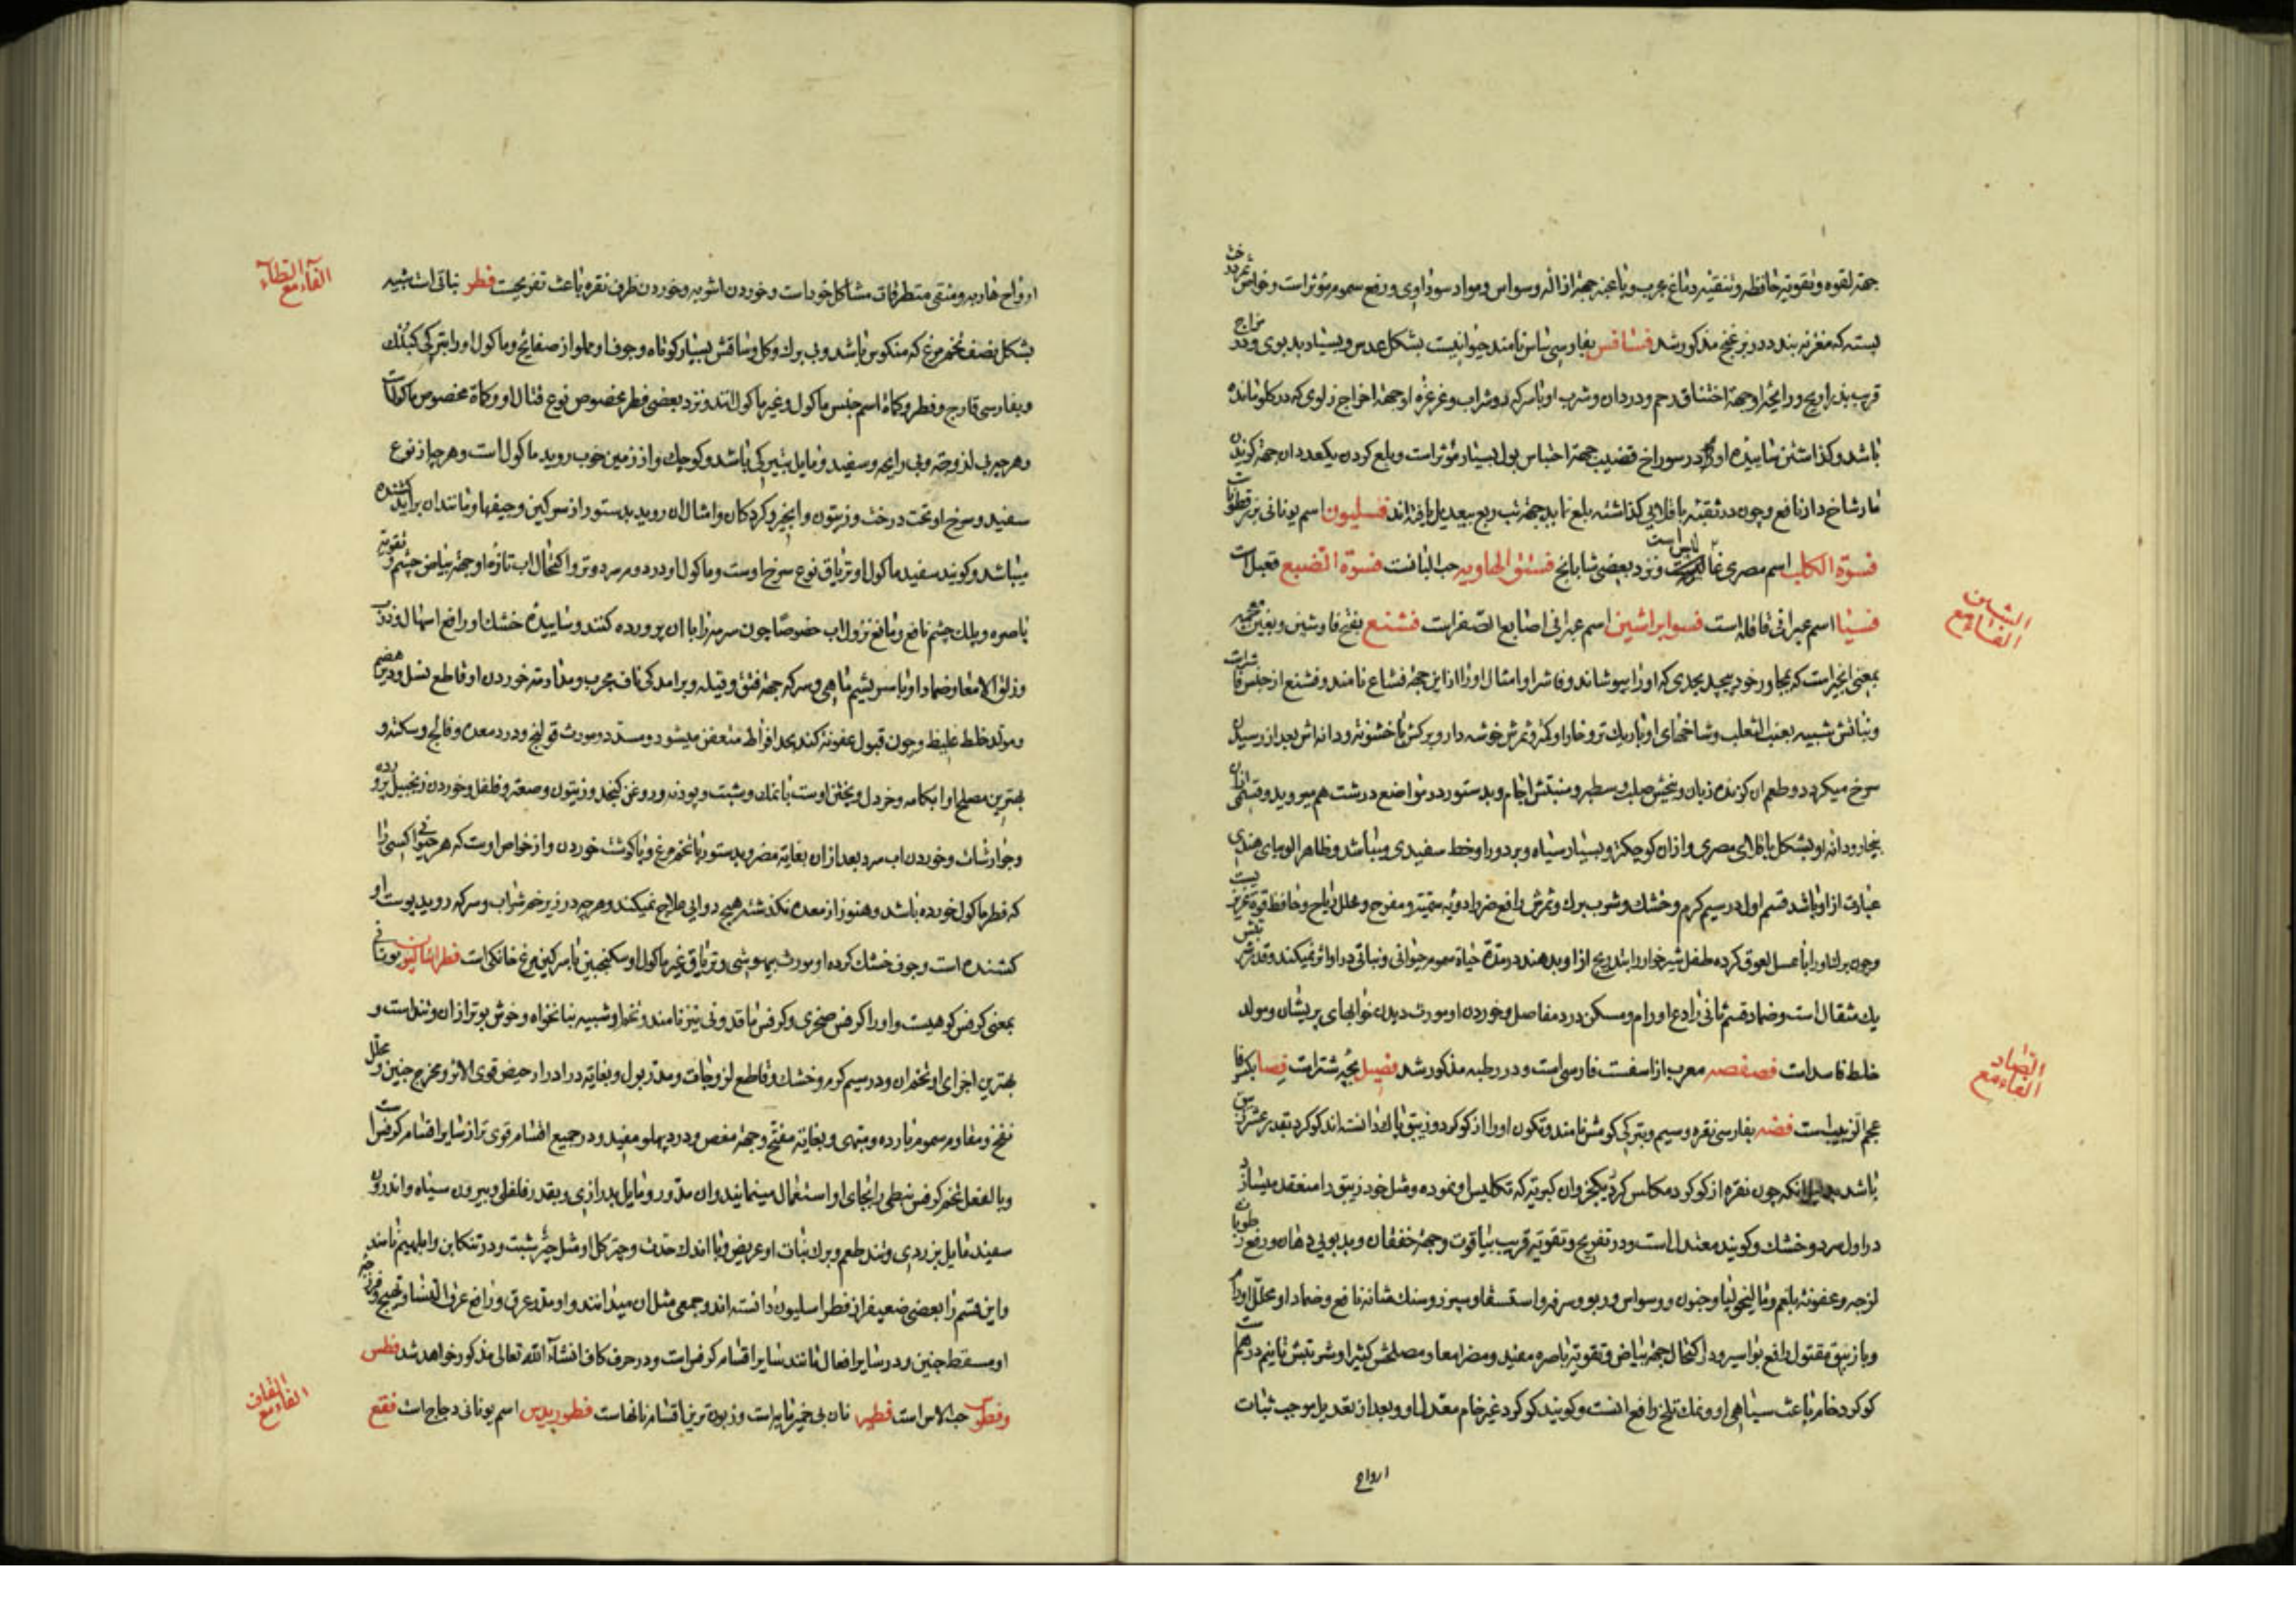 جهة لقوه و تقویة حافظه و تنقیه دماغ مجرب و با عنبر جهة ازاله وسواس و مواد سوداوی و رفع سموم مؤثر است و خواص
پسته که مغز نه بندد در بزغنج مذکور شد فسافس بفارسی ساس نامند حیوانیست بشکل عدس و بسیار بد بوی و در
قریب بذراریح و رایحه او جهة اختناق رحم و دردان و شرب او با سرکه و شراب و غرغره او جهة اخراج زلوی که در کلو مانده
باشد و کذاشتن سائیده او در سوراخ قضیب جهة احتباس بول بسیار مؤثر است و بلع کردن یکعدد ان جهة کزیدن
مار شاخ دار نافع و چون در ثقبه باقلایی کذاشته بلع نماید جهة تب ربع بیعدیل یافته اند فسلیون اسم یونانی بزرقطونا
فسوة الکلاب اسم مصری و نزد بعضی شابانج فستق الهاویه حب البانست فسوة الضبع فقعبل است
فسیا اسم عبرانی قاقله است فسوابراشین اسم عبرانی اصابع الصفر است فشنع بفتح فا و شین و بغین معجمه
الشین
الفاء مع
بمعنی انجیر است که بمجاور خود پیچد بحدی که او را بپوشاند و فاشرا و امثال او را از این جهة فشاغ نامند و فشنع از جنس فاشراست
و نباتش شبیه بعنب الثعلب و شاخهای او باریک تر و خار او کمتر و ثمرش خوشه دار و برکش با خشونة و دانه اش بعد از رسیدن
سرخ میکردد و طعم ان کزنده زبان و بیخش صلب و سطبر و منبتش اجام و بدستور در مواضع درشت هم میروید و قسمی از ان
بیخار و دانه او بشکل باقلای مصری و از ان کوچکتر و بسیار سیاه و بر دور او خط سفیدی و میباشد و ظاهرا لوبیای هندی
عبارت از او باشد قسم اول در سیم کرم و خشک و شرب برک و ثمرش رافع ضرر ادویه سمیته و مفرح و محلل ریاح و حافظ قوة غریزیست
و چون برک او را با عسل لعوق کرده طفل شیرخوار را بتدریج از او بدهند در مدة حیاة سموم حیوانی و نباتی در او اثر نمیکند و قدر شربتش
یک مثقال است و ضماد قسم ثانی رادع اورام و مسکن درد مفاصل و خوردن او مورث دیدن خوابهای پریشان و مولد
خلط فاسد است فصفصه معرب از اسفست فارسی است و در رطبه مذکور شد فصیل بچه شتر است فصا بکسر فا
الضاد
الفاء مع
عجم الزبیب است فضه بفارسی نقره و سیم و بترکی کومش نامند و تکون او را از کوکرد و زیبق پاک دانسته اند کوکرد بقدر عشر زیبق
باشد بدلیل انکه چون نقره از کوکرد مکلس کردد بکجز و ان کبریتی که تکلیس او نموده و مثل خود زیبق را منعقد میسازد
در اول سرد و خشک و کویند معتدل است و در تفریح و تقویة قریب بیاقوت و جهة خفقان و بدبویی دهان و رفع رطوبات
لزجه و عفونة بلغم و مالیخولیا و جنون و وسواس و ربو و سرفه و استسقا و سپرز و سنک مثانه نافع و ضماد او محلل اورام
و با زیبق مقتول رافع بواسیر و اکتحال جهة بیاض و تقویة باصره مفید و مضر امعا و مصلحش کثیرا و شربتش تا نیم درهم است
کوکرد خام باعث سیاهی او و نمک تلخ رافع انست و کویند کوکرد غیر خام معتدل او و بعد از تعدیل موجب ثبات
ارواح
ارواح هاربه و منقی متطرقات مشاکل خود است و خوردن اشربه و خوردن ظرف نقره باعث تفریحست فطر نباتی است شبیه
الفاء مع الطاء
بشکل نصف تخم مرغ که منکوس باشد و بی برک و کل و ساقش بسیار کوتاه و جوف او مملو از صفایح و ماکول او را بترکی کبلک
و بفارسی قارچ و فطر و کماة اسم جنس ماکول و غیر ماکول اند و نزد بعضی فطر مخصوص نوع قتال او و کماة مخصوص ماکولست
و هر چه بی لزوجة و بی رایحه و سفید و مایل بتیرکی باشد و کوچک و از زمین خوب روید ماکول است و هر چه از نوع
سفید و سرخ او تحت درخت و زیتون و انجیر و کردکان و امثال ان روید بدستور از سرکین و جیفها و مانند ان براید کشنده
میباشد و کویند سفید ماکول او تریاق نوع سرخ اوست و ماکول او در دوم سرد و تر و اکتحال اب تازه او جهة بیاض چشم و تقویة
باصره و پلک چشم نافع و مانع نزول اب خصوصا چون سرمه را با ان پرورده کنند و ساییده خشک او رافع اسهال و ذرب
و زلق الامعا و ضماد او با سریشم ماهی و سرکه جهة فتق و قیله و برامدکی ناف مجرب و مداومة خوردن او قاطع نسل و دیر هضم
و مولد خلط غلیظ و چون قبول عفونة کند بحد افراط متعفن میشود و مسدد و مورث قولنج و درد معده و فالج و سکته و
بهترین مصلح او ابکامه و خردل و پختن اوست با نمک و شبت و پودنه و روغن کنجد و زیتون و صعتر و فلفل و خوردن زنجبیل پرورده
و جوارشات و خوردن اب سرد بعد از ان بغایة مضر و بدستور با تخم مرغ و با کوشت خوردن و از خواص اوست که هر حیوانی کسی را
که فطر ماکول خورده باشد و هنوز از معده نکذشته هیچ دوایی علاج نمیکند و هر چه در زیر خم شراب و سرکه روید بوست او
کشنده است و جوف خشک کرده او مورث بیهوشی و تریاق غیر ماکول او سکنجبین با سرکین مرغ خانکی است فطراسالیون یونانی
بمعنی کرفس کوهیست و او را کرفس صخری و کرفس ماقدونی نیز نامند و تخم او شبیه بنانخواه و خوش بوتر از ان و تند است و
بهترین اجزای او تخم ان و در سیم کرم و خشک و قاطع لزوجات و مدر بول و بغایة در ادرار حیض قوی الاثر و مخرج جنین و محلل
نفخ و مقاوم سموم بارده و مبهی و بغایة مفتح و جهة مغص و درد پهلو مفید و در جمیع افعال قوی تر از سایر اقسام کرفس است
و بالفعل تخم کرفس نبطی را بجای او استعمال مینمایند و ان مدور و مایل بدرازی و بقدر فلفلی و بیرون سیاه و اندرون
سفید مایل بزردی و تند طعم و برک نبات او عریض و با اندک حدت و چتر کل او مثل چتر شبت و در تنکابن و املهیم نامند
و این قسم را بعضی ضعیفرا فطراسلیون دانسته اند و جمعی مثل ان میدانند و او مدر عرق و رافع عرق النسا و تهیج و فرزجه
او مسقط جنین و در سایر افعال مانند سایر اقسام کرفس است و در حرف کاف انشاء الله تعالی مذکور خواهد شد فطس
و فطوس حب الاس است فطیر نان بی خمیر مایه است و زبون ترین اقسام نانهاست فطوریدس اسم یونانی دجاج است فقع
الفاء مع القاف